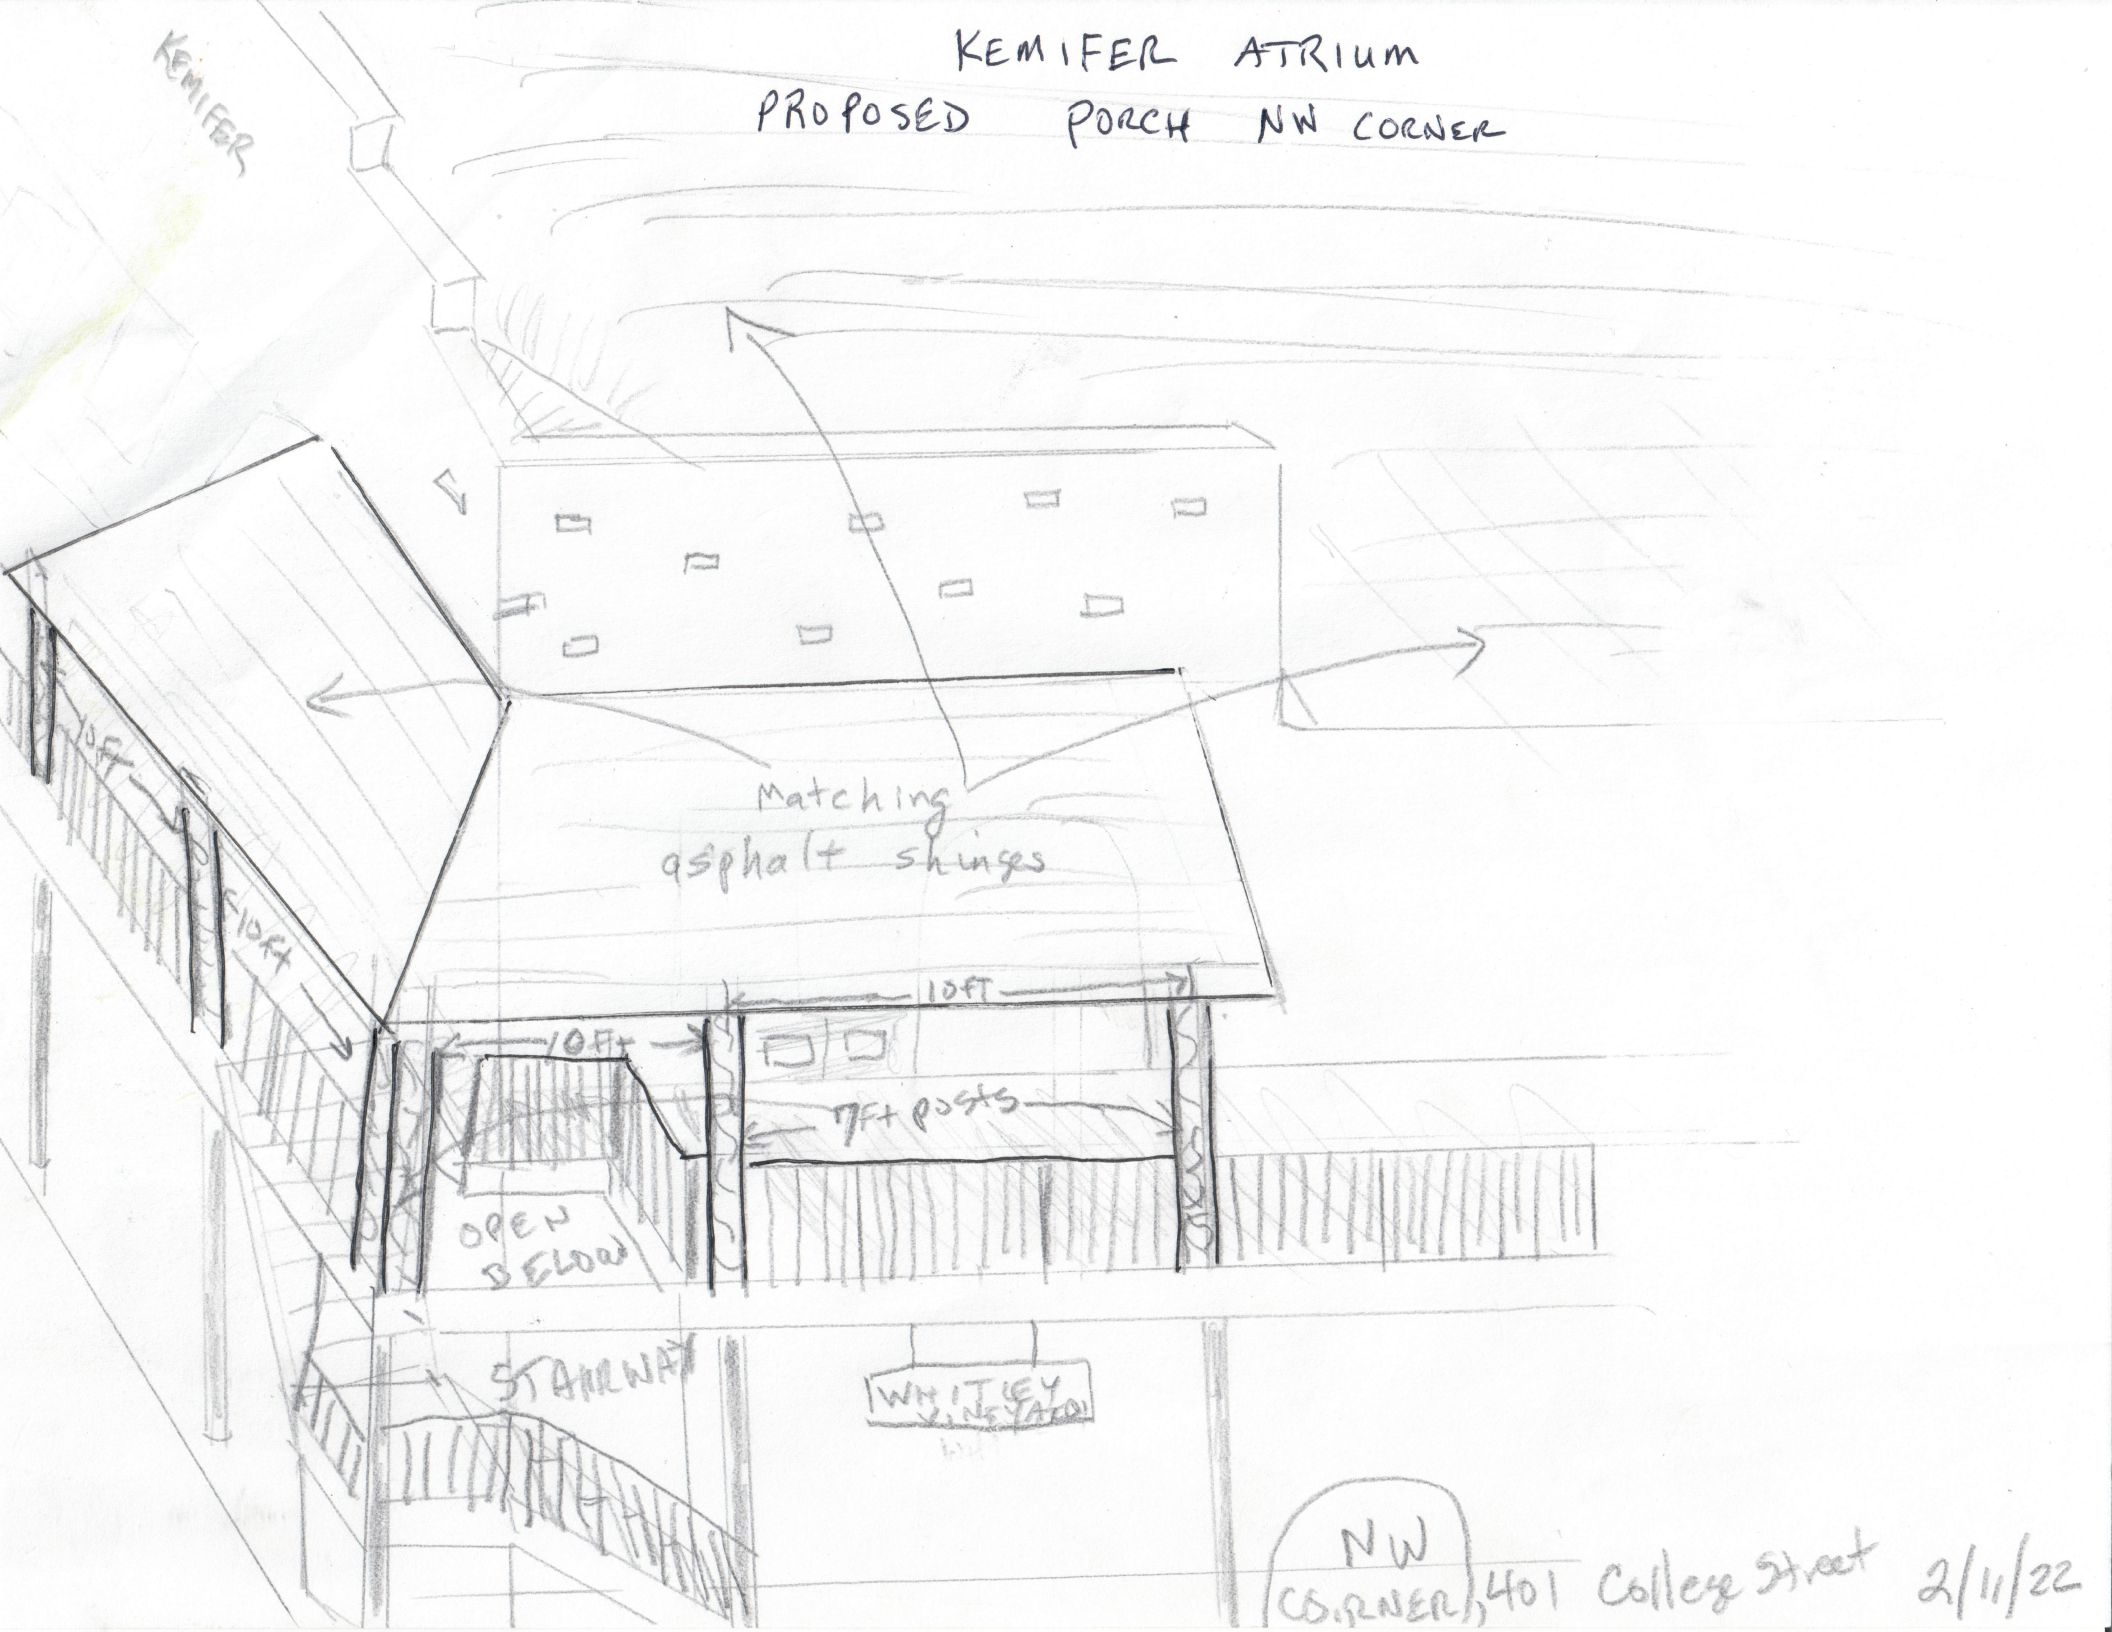 KEMIFER ATRIUM
PROPOSED PORCH NW CORNER
KEMIFER
Matching
asphalt shinges
10ft
10ft
10ft
10ft
7ft posts
OPEN
BELOW
STAIRWAY
WHITLEY
VINEYARD
NW
CORNER, 401 College Street 2/11/22